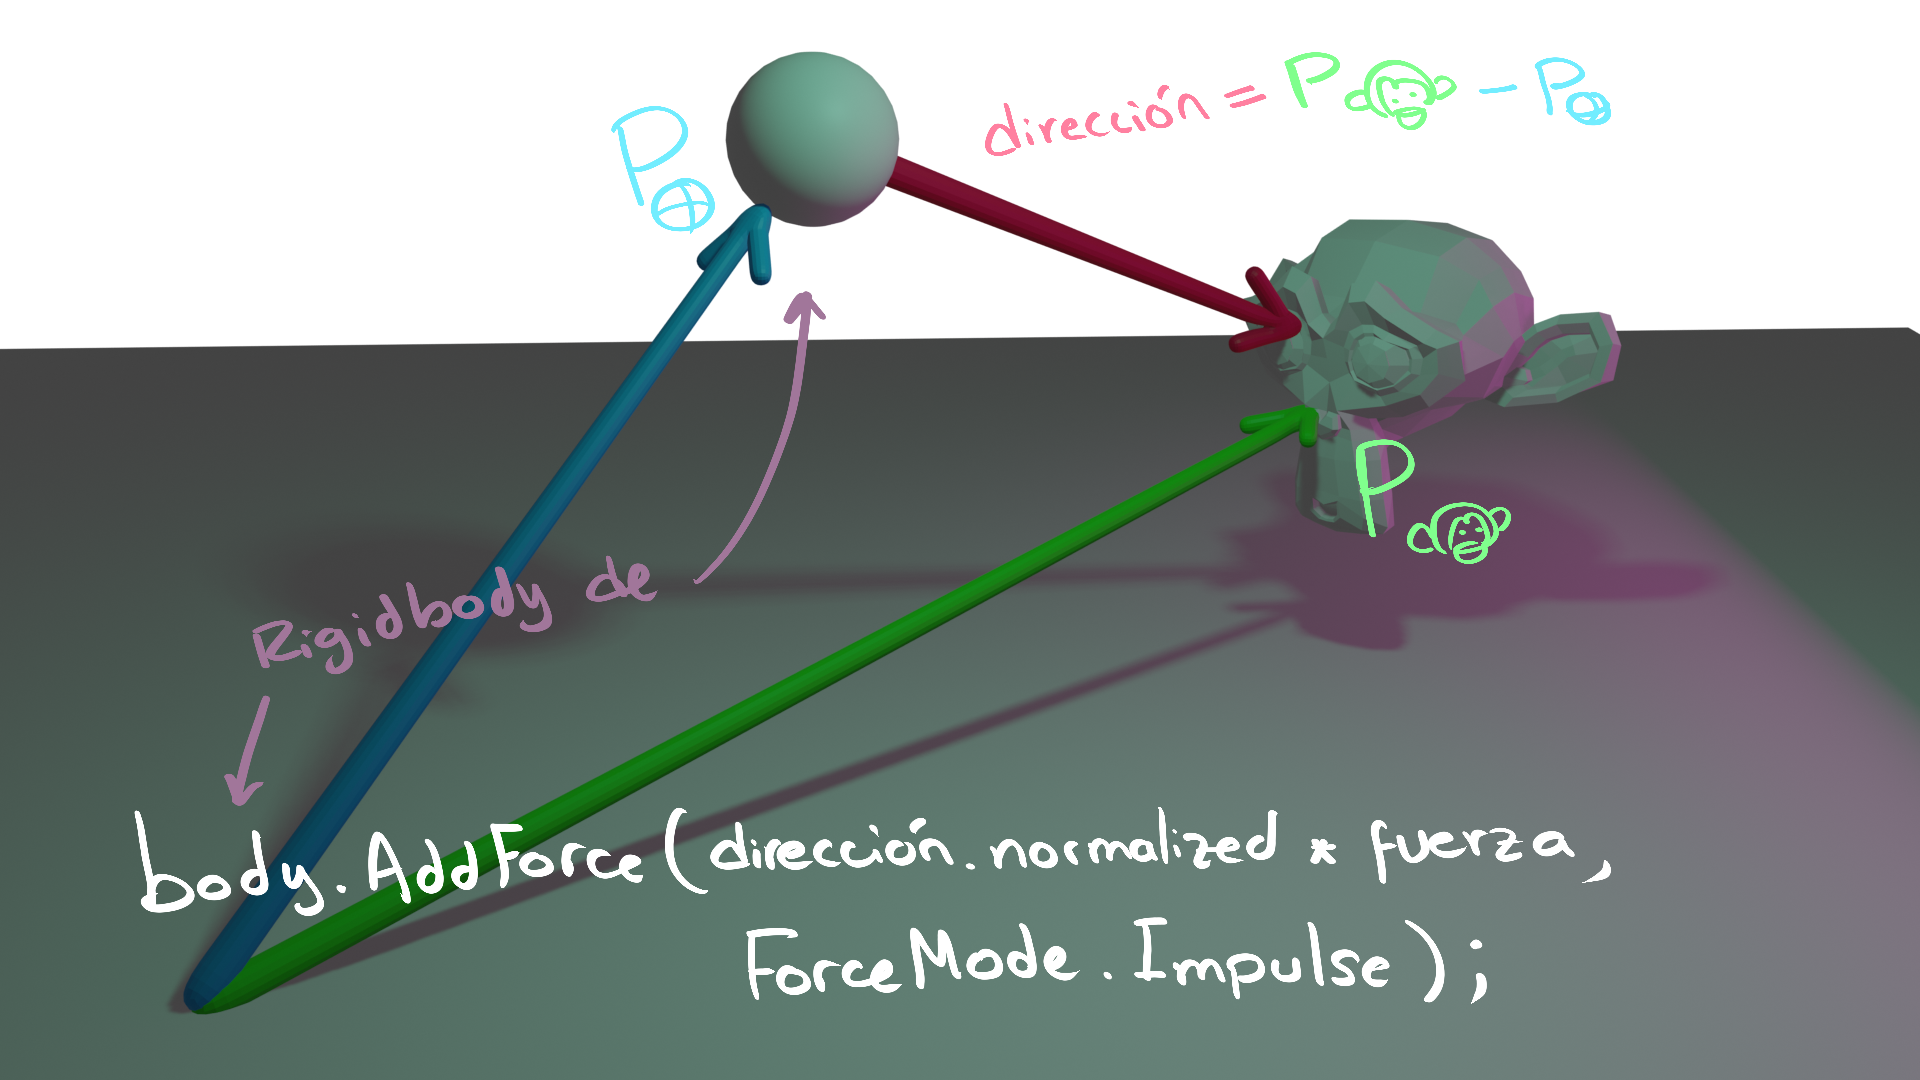 P
dirección = P - P
P
Rigidbody de
body.AddForce(dirección.normalized * fuerza,
ForceMode.Impulse);